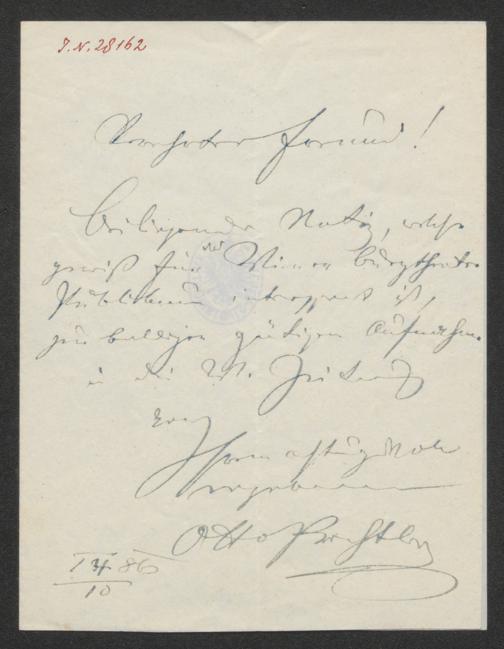 J.N. 28162
Verehrter Freund!
Beiliegende Notiz, welche
gewiß für das Wiener Burgtheater-
Publikum interessant ist,
zur baldigen gütigen Aufnahme
in die W. Zeitung
Ihr
hochachtungsvoll
ergebener
Otto Prechtler
86
10